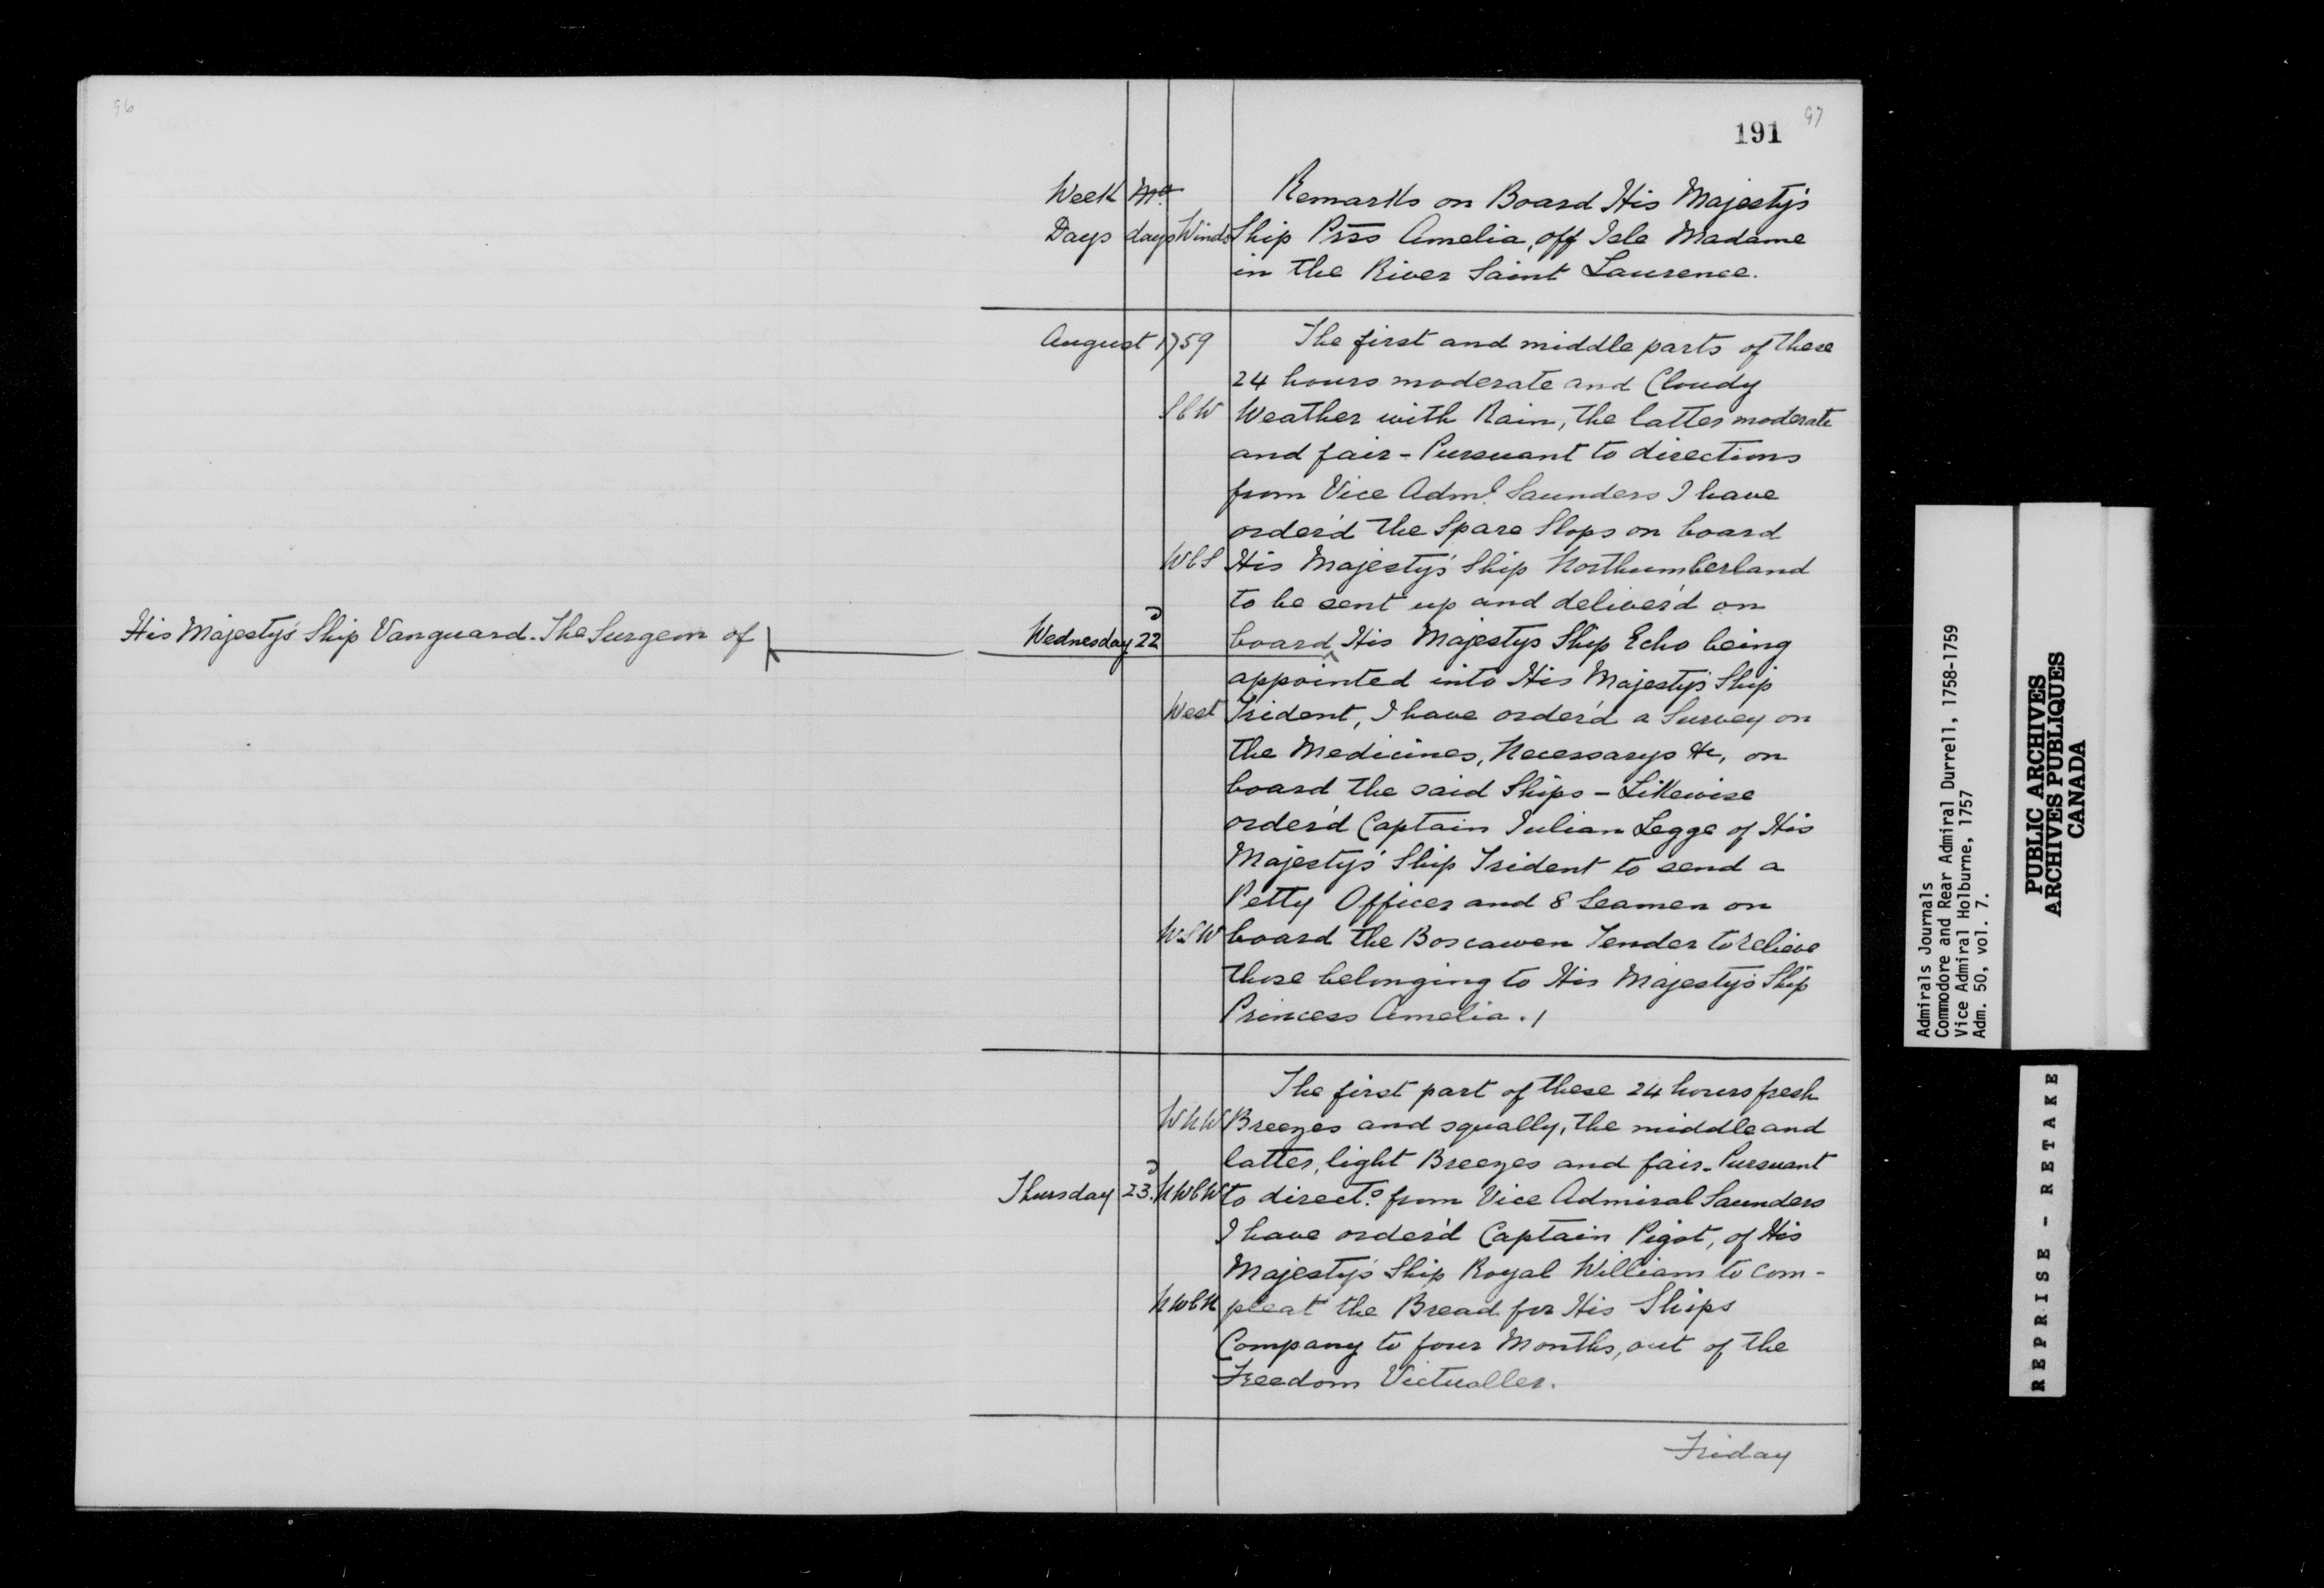 96
His Majesty's Ship Vanguard. The Surgeon of
97
191
Week Mo. Remarks on Board His Majesty's
Days days Winds Ship Prss Amelia, off Isle Madame
in the River Saint Laurence.
August 1759 The first and middle parts of these
24 hours moderate and Cloudy
SbW Weather with Rain, the latter moderate
and fair - Pursuant to directions
from Vice Adml. Saunders I have
order'd the Spare Slops on board
WbS His Majesty's Ship Northumberland
to be sent up and deliver'd on
Wednesday 22d board ‸ His Majestys Ship Echo being
appointed into His Majesty's Ship
West Trident, I have order'd a Survey on
the Medicines, Necessarys &c, on
board the said Ships - Likewise
order'd Captain Julian Legge of His
Majesty's Ship Trident to send a
Petty Officer and 8 Seamen on
WSW board the Boscawen Tender to relieve
those belonging to His Majesty's Ship
Princess Amelia ./
The first part of these 24 hours fresh
WNW Breezes and squally, the middle and
latter, light Breezes and fair. Pursuant
Thursday 23d. NWbW to directs. from Vice Admiral Saunders
I have order'd Captain Pigot, of His
Majesty's Ship Royal William to com-
NWbN pleat the Bread for His Ships
Company to four Months, out of the
Freedom Victualler.
Friday
Admirals Journals
Commodore and Rear Admiral Durrell, 1758-1759
Vice Admiral Holburne, 1757
Adm. 50, vol. 7.
PUBLIC ARCHIVES
ARCHIVES PUBLIQUES
CANADA
REPRISE - RETAKE